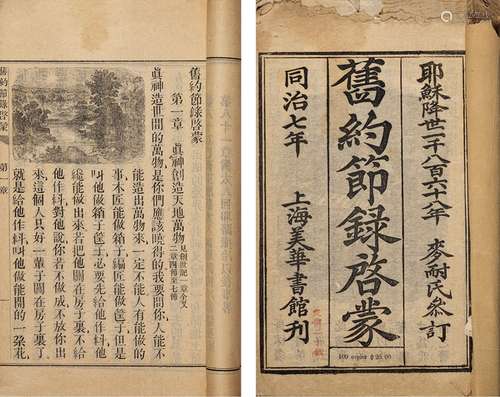 耶穌降世一千八百六十八年　麥耐氏參訂
舊約節錄啓蒙
同治七年　上海美華書館刊
100 copies $ 25.00
舊約節錄啓蒙
第一章　眞神創造天地萬物
見創世記一章全又
二章四節至七節
眞神造世間的萬物是你們應該曉得的我要問你人能不
能造出萬物來一定不能人有能做的
事木匠能做箱子編匠能做筐子但是
叫他做箱子筐子必要先給他作料他
纔能做出來若把他關在房子裏不給
他作料對他說你若不做成不放你出
來這個人只好一輩子關在房子裏了
就是給他作料叫他做能開的一朶花
舊約節錄啓蒙
第一章